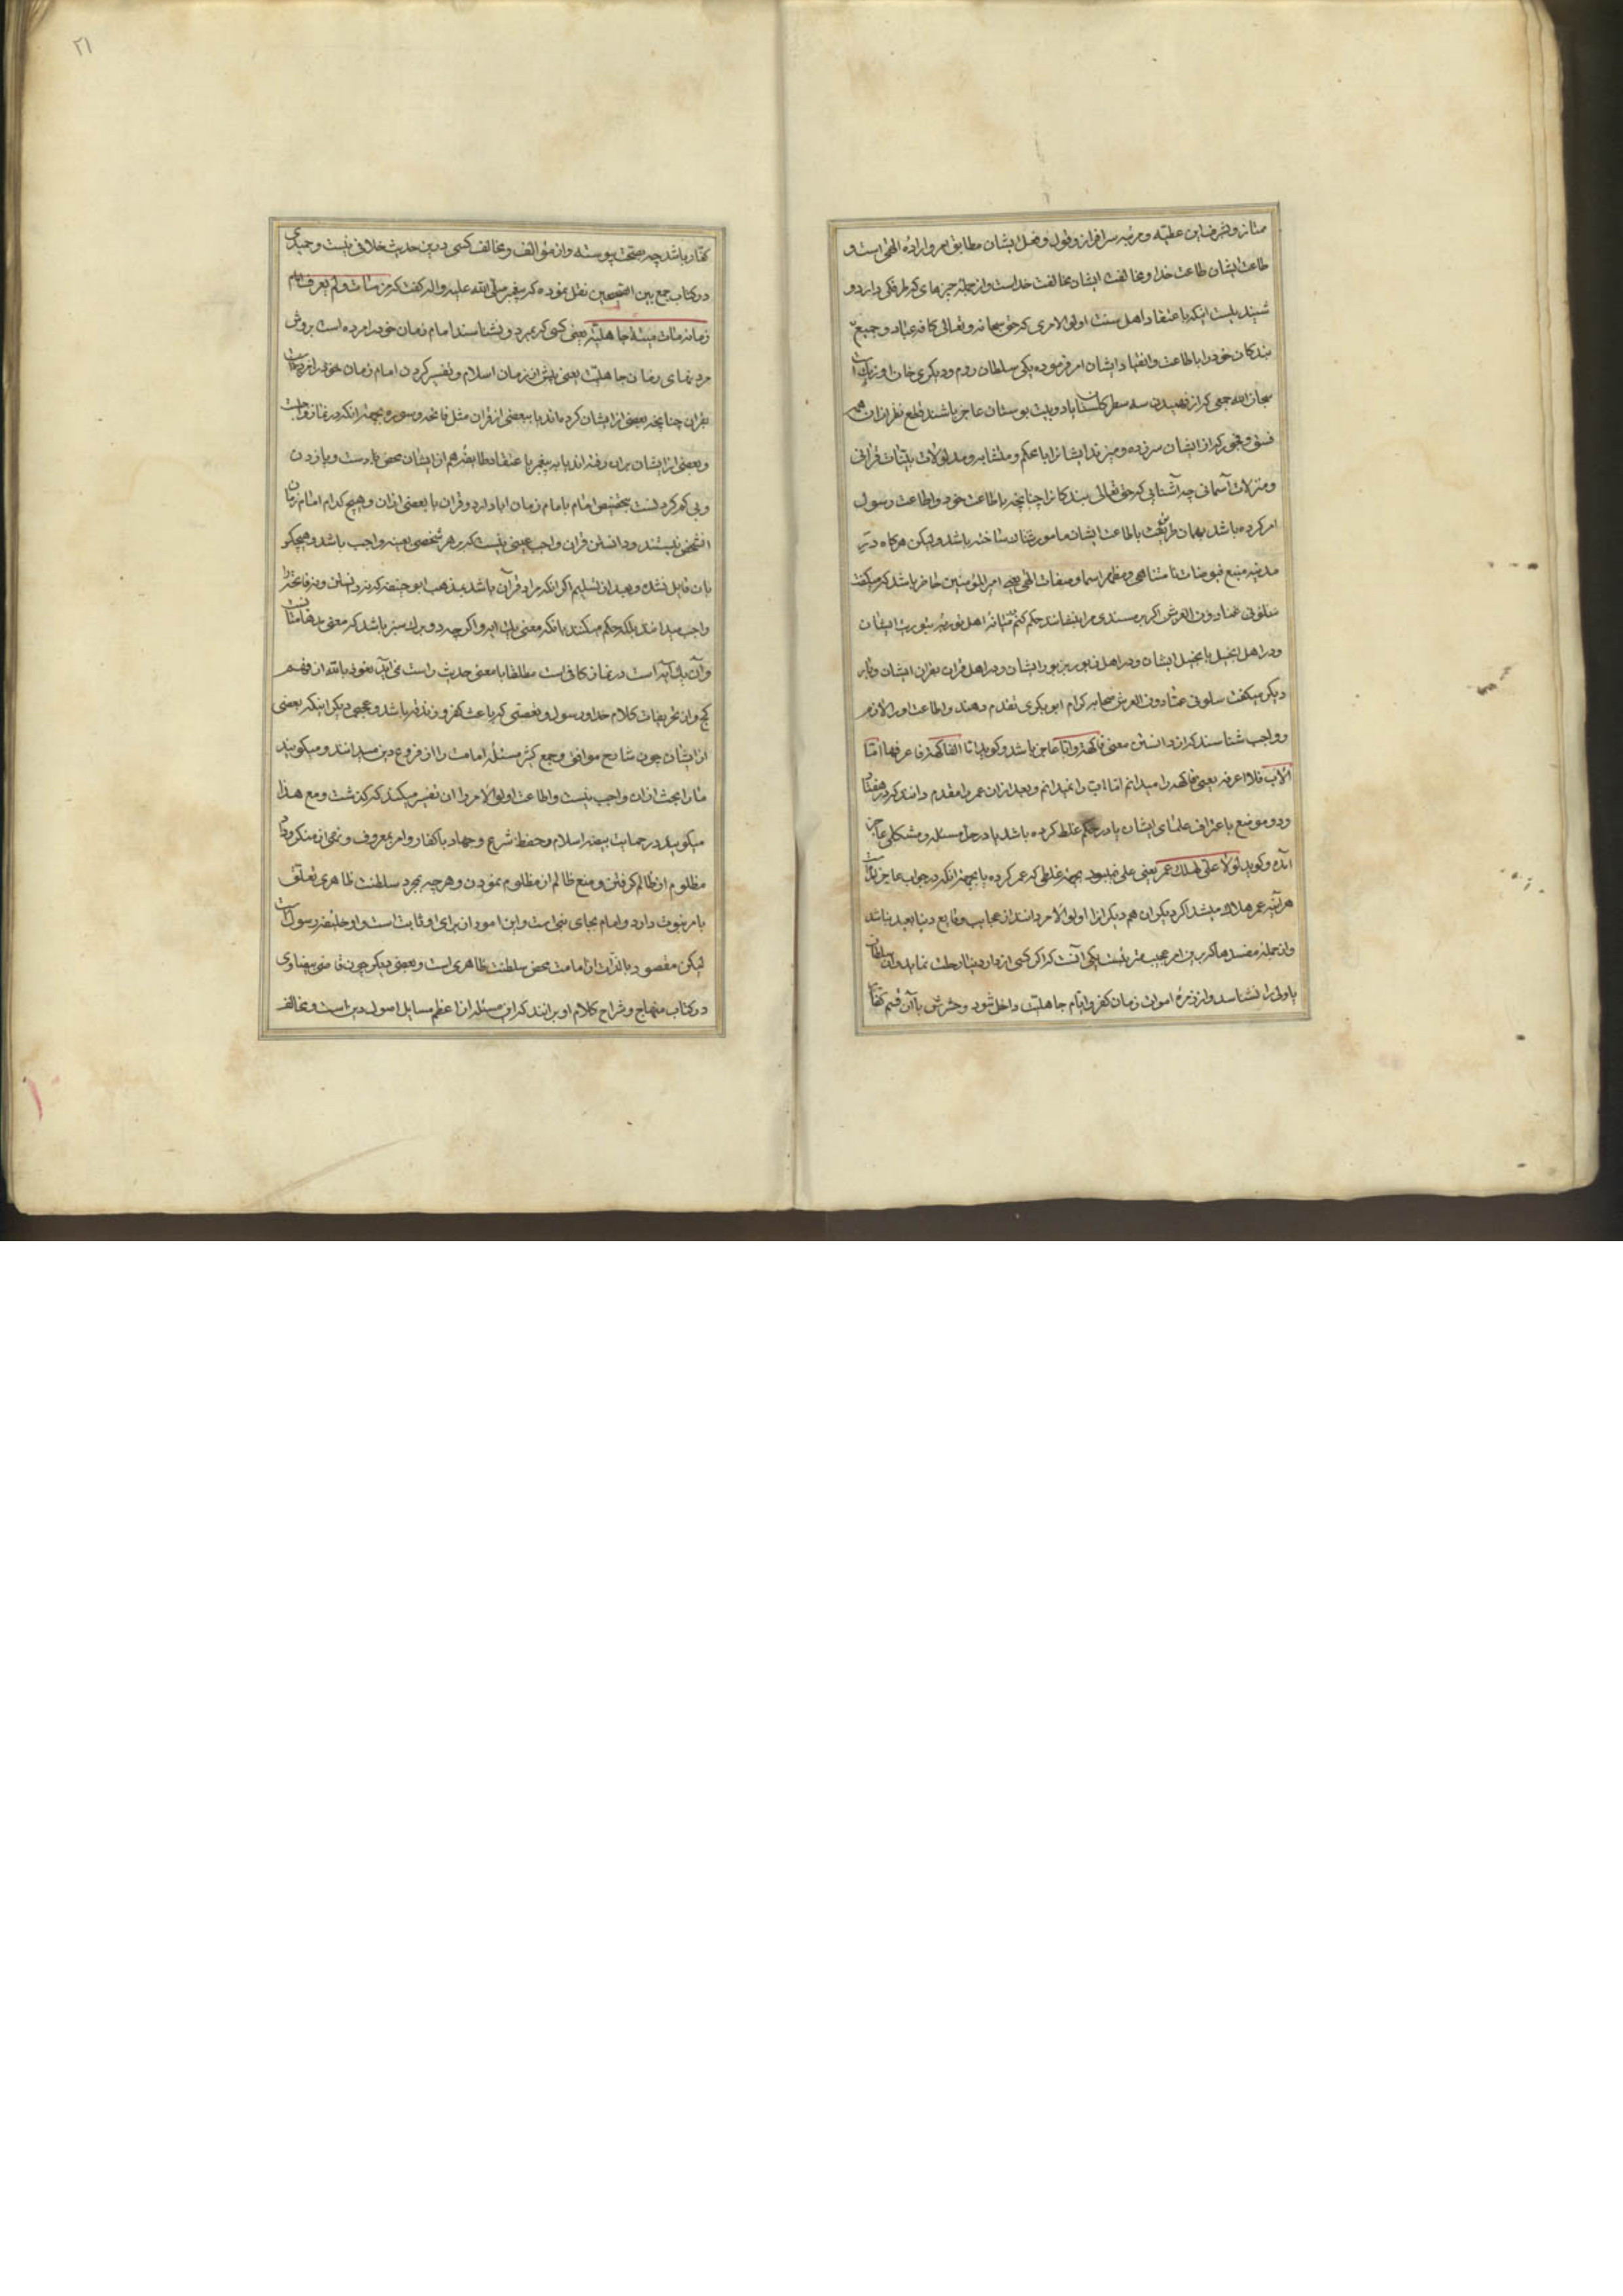 ممتاز و بشرف این عطیه و مرتبه سرافراز و قول و فعل ایشان مطابق امر و اراده الهی است و
طاعت ایشان طاعت خدا و مخالفت ایشان مخالفت خداست و از جمله چیزهای که طرفکی دارد و
شنیدنیست اینکه باعتقاد اهل سنت اولو الامری که حق سبحانه و تعالی کافه عباد و جمیع
بندکان خود را باطاعت و انقیاد ایشان امر فرموده یکی سلطان روم و دیکری خان اوزبک
سبحان الله جمعی که از فهمیدن سه سطر کلستان یا دو بیت بوستان عاجز باشند قطع نظر از آن همه
فسق و فجور که از ایشان سرزده و میزند ایشانرا با محکم و متشابه و مدلولات بینات قرآنی
و منزلات آسمانی چه آشنایی که حق تعالی بندکانرا چنانچه باطاعت خود و اطاعت رسول
امر کرده باشد بهمان طریق باطاعت ایشان مامور ساخته باشد و لیکن هرکاه در
مدینه منبع فیوضات نامتناهی و مظهر اسما و صفات الهی یعنی امیر المؤمنین حاضر باشد که میکفت
سلونی عما دون العرش اکر بر مسندی مرا بنشانند حکم کنم میانه اهل توریة بتوریت ایشان
و در اهل انجیل بانجیل ایشان و در اهل زبور بزبور ایشان و در اهل قران بقران ایشان و بار
دیکر میکفت سلونی عما دون العرش صحابه کرام ابو بکری تقدم دهند و اطاعت او را لازم
و واجب شناسند که از دانستن معنی فاکهة و ابا عاجز باشد و کوید اما الفاکهة فاعرفها اما
الاب فلا اعرفه یعنی فاکهه را میدانم اما اب را نمیدانم و بعد از ان عمر را مقدم دانند که در هفتاد
و دو موضع باعتراف علمای ایشان یا در حکم غلط کرده باشد یا در حل مسئله و مشکلی عاجز
آمده و کوید لولا علی لهلک عمر یعنی علی نمیبود بجهة غلطی که عمر کرده یا بجهة انکه در جواب عاجز
هر آینه عمر هلاک میشد اکر دیکران هم دیکر انرا اولو الامر دانند از عجایب وقایع دنیا بعید نباشد
و از جمله مفسدها که بر این امر عجیب مترتبست یکی آنست که اکر کسی از دار دنیا رحلت نماید و ان سلطان
یا والی را نشناسد و از زمره اموات زمان کفر و ایام جاهلیت داخل شود و حشرش با آن قسم کفار
۲۱
کفار باشد چه بصحت پیوسته و از مؤالف و مخالف کسی در این حدیث خلافی نیست و حمیدی
در کتاب جمع بین الصحیحین نقل نموده که پیغمبر صلی الله علیه و اله کفت که من مات و لم یعرف امام
زمانه مات میتة جاهلیة یعنی کسی که بمرد و نشناسد امام زمان خود را مرده است بروش
مردنهای زمان جاهلیت یعنی پیش از زمان اسلام و تفسیر کردن امام زمان خود را
بقران چنانچه بعضی از ایشان کرده‌اند یا ببعضی از قران مثل فاتحه و سوره بجهة انکه در نماز واجب
و بعضی از ایشان بران رفته اند یا به پیغمبر باعتقاد طایفه هم از ایشان محض نادرست و یاز دن
و پی کم کردنست تخصیص امام بامام زمان ابا دارد و قران یا بعضی از ان و هیچ کدام امام زمان
انشخص نیستند و دانستن قران واجب عینی نیست که بر هر شخصی بعینه واجب باشد و هیچکس
بان قایل نشده و بعد از تسلیم اکر انکه مراد قرآن باشد مذهب ابو حنیفه که نه دانستن و نه فاتحه را
واجب میداند بلکه حکم میکنند بانکه معنی یک ایه و اکر چه دو برک سبز باشد که معنی مدهامتان
و آن یک آیه است در نماز کافی است مطلقا با معنی حدیث راست نمی‌آید نعوذ بالله از فهم
کج و از تحریفات کلام خدا و رسول و تعصبی که باعث کفر و زندقه باشد و عجبی دیکر اینکه بعضی
از ایشان چون شارح مواقف و جمع کثیر مسئله امامت را از فروع دین میدانند و میکویند
ما را بحث از ان واجب نیست و اطاعت اولو الامر را ان تفسیر میکنند که کذشت و مع هذا
میکویند در حمایت بیضه اسلام و حفظ شرع و جهاد با کفار و امر بمعروف و نهی از منکر و داد
مظلوم از ظالم کرفتن و منع ظالم از مظلوم نمودن و هر چه بجز سلطنت ظاهری تعلق
بامر نبوت دارد و امام بجای نبی است و این امور از برای او ثابت است و او خلیفه رسول است
لیکن مقصود بالذات از امامت محض سلطنت ظاهری است و بعضی دیکر چون قاضی بیضاوی
در کتاب منهاج و شراح کلام او برانند که این مسئله از اعظم مسایل اصول دین است و مخالف